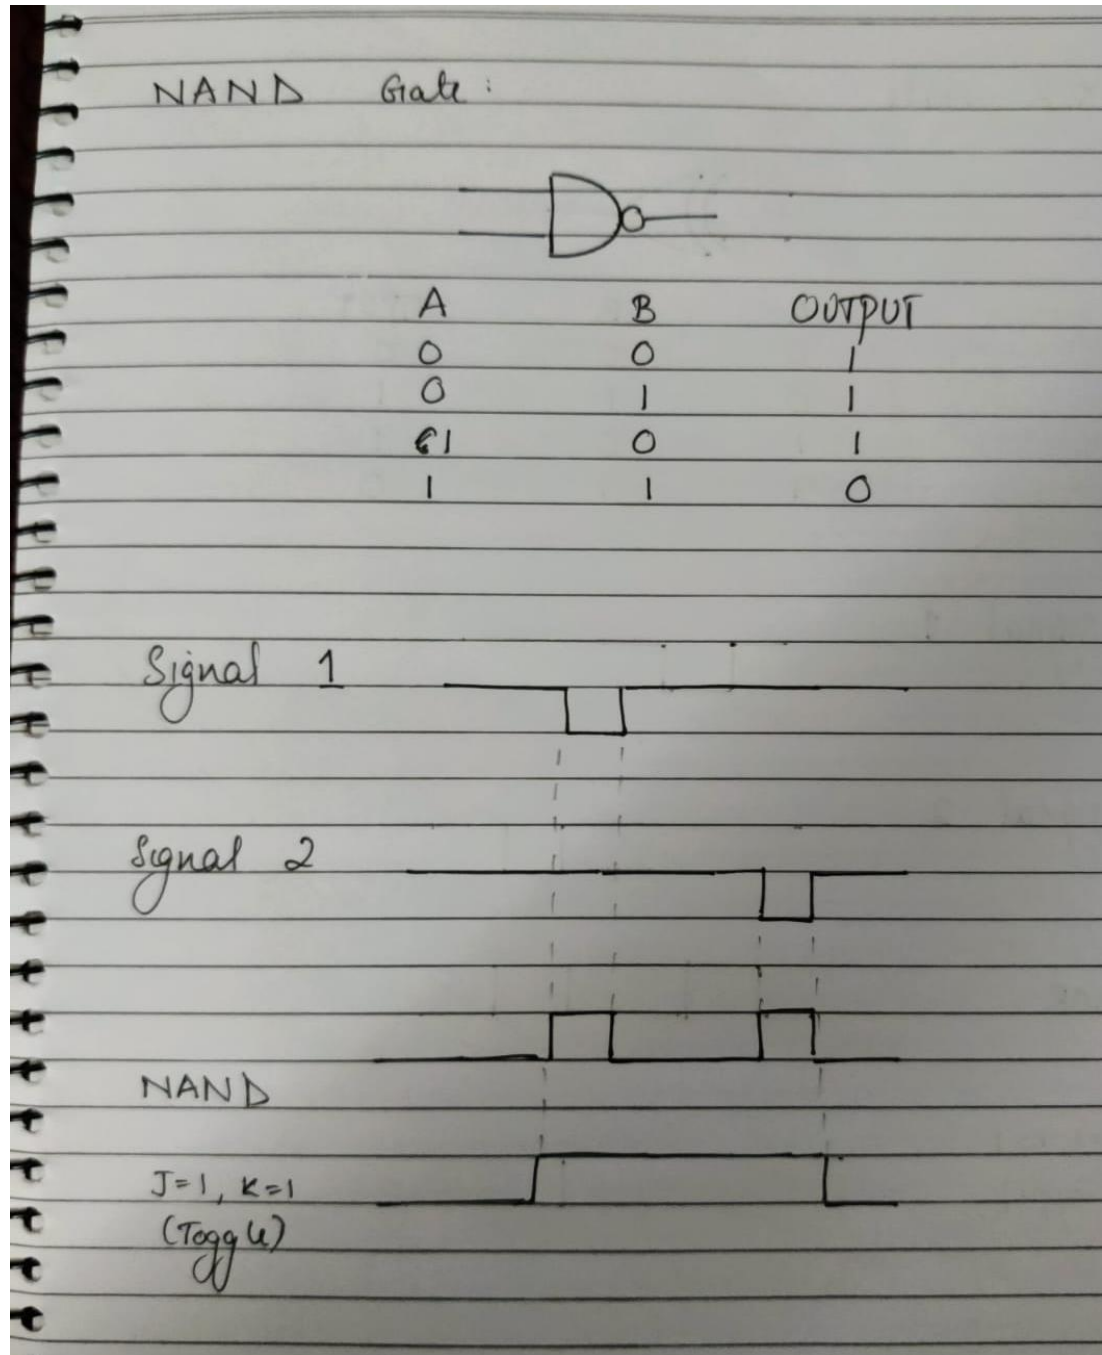 NAND Gate :
A B OUTPUT
0 0 1
0 1 1
1 0 1
1 1 0
Signal 1
Signal 2
NAND
J=1, K=1
(Toggle)